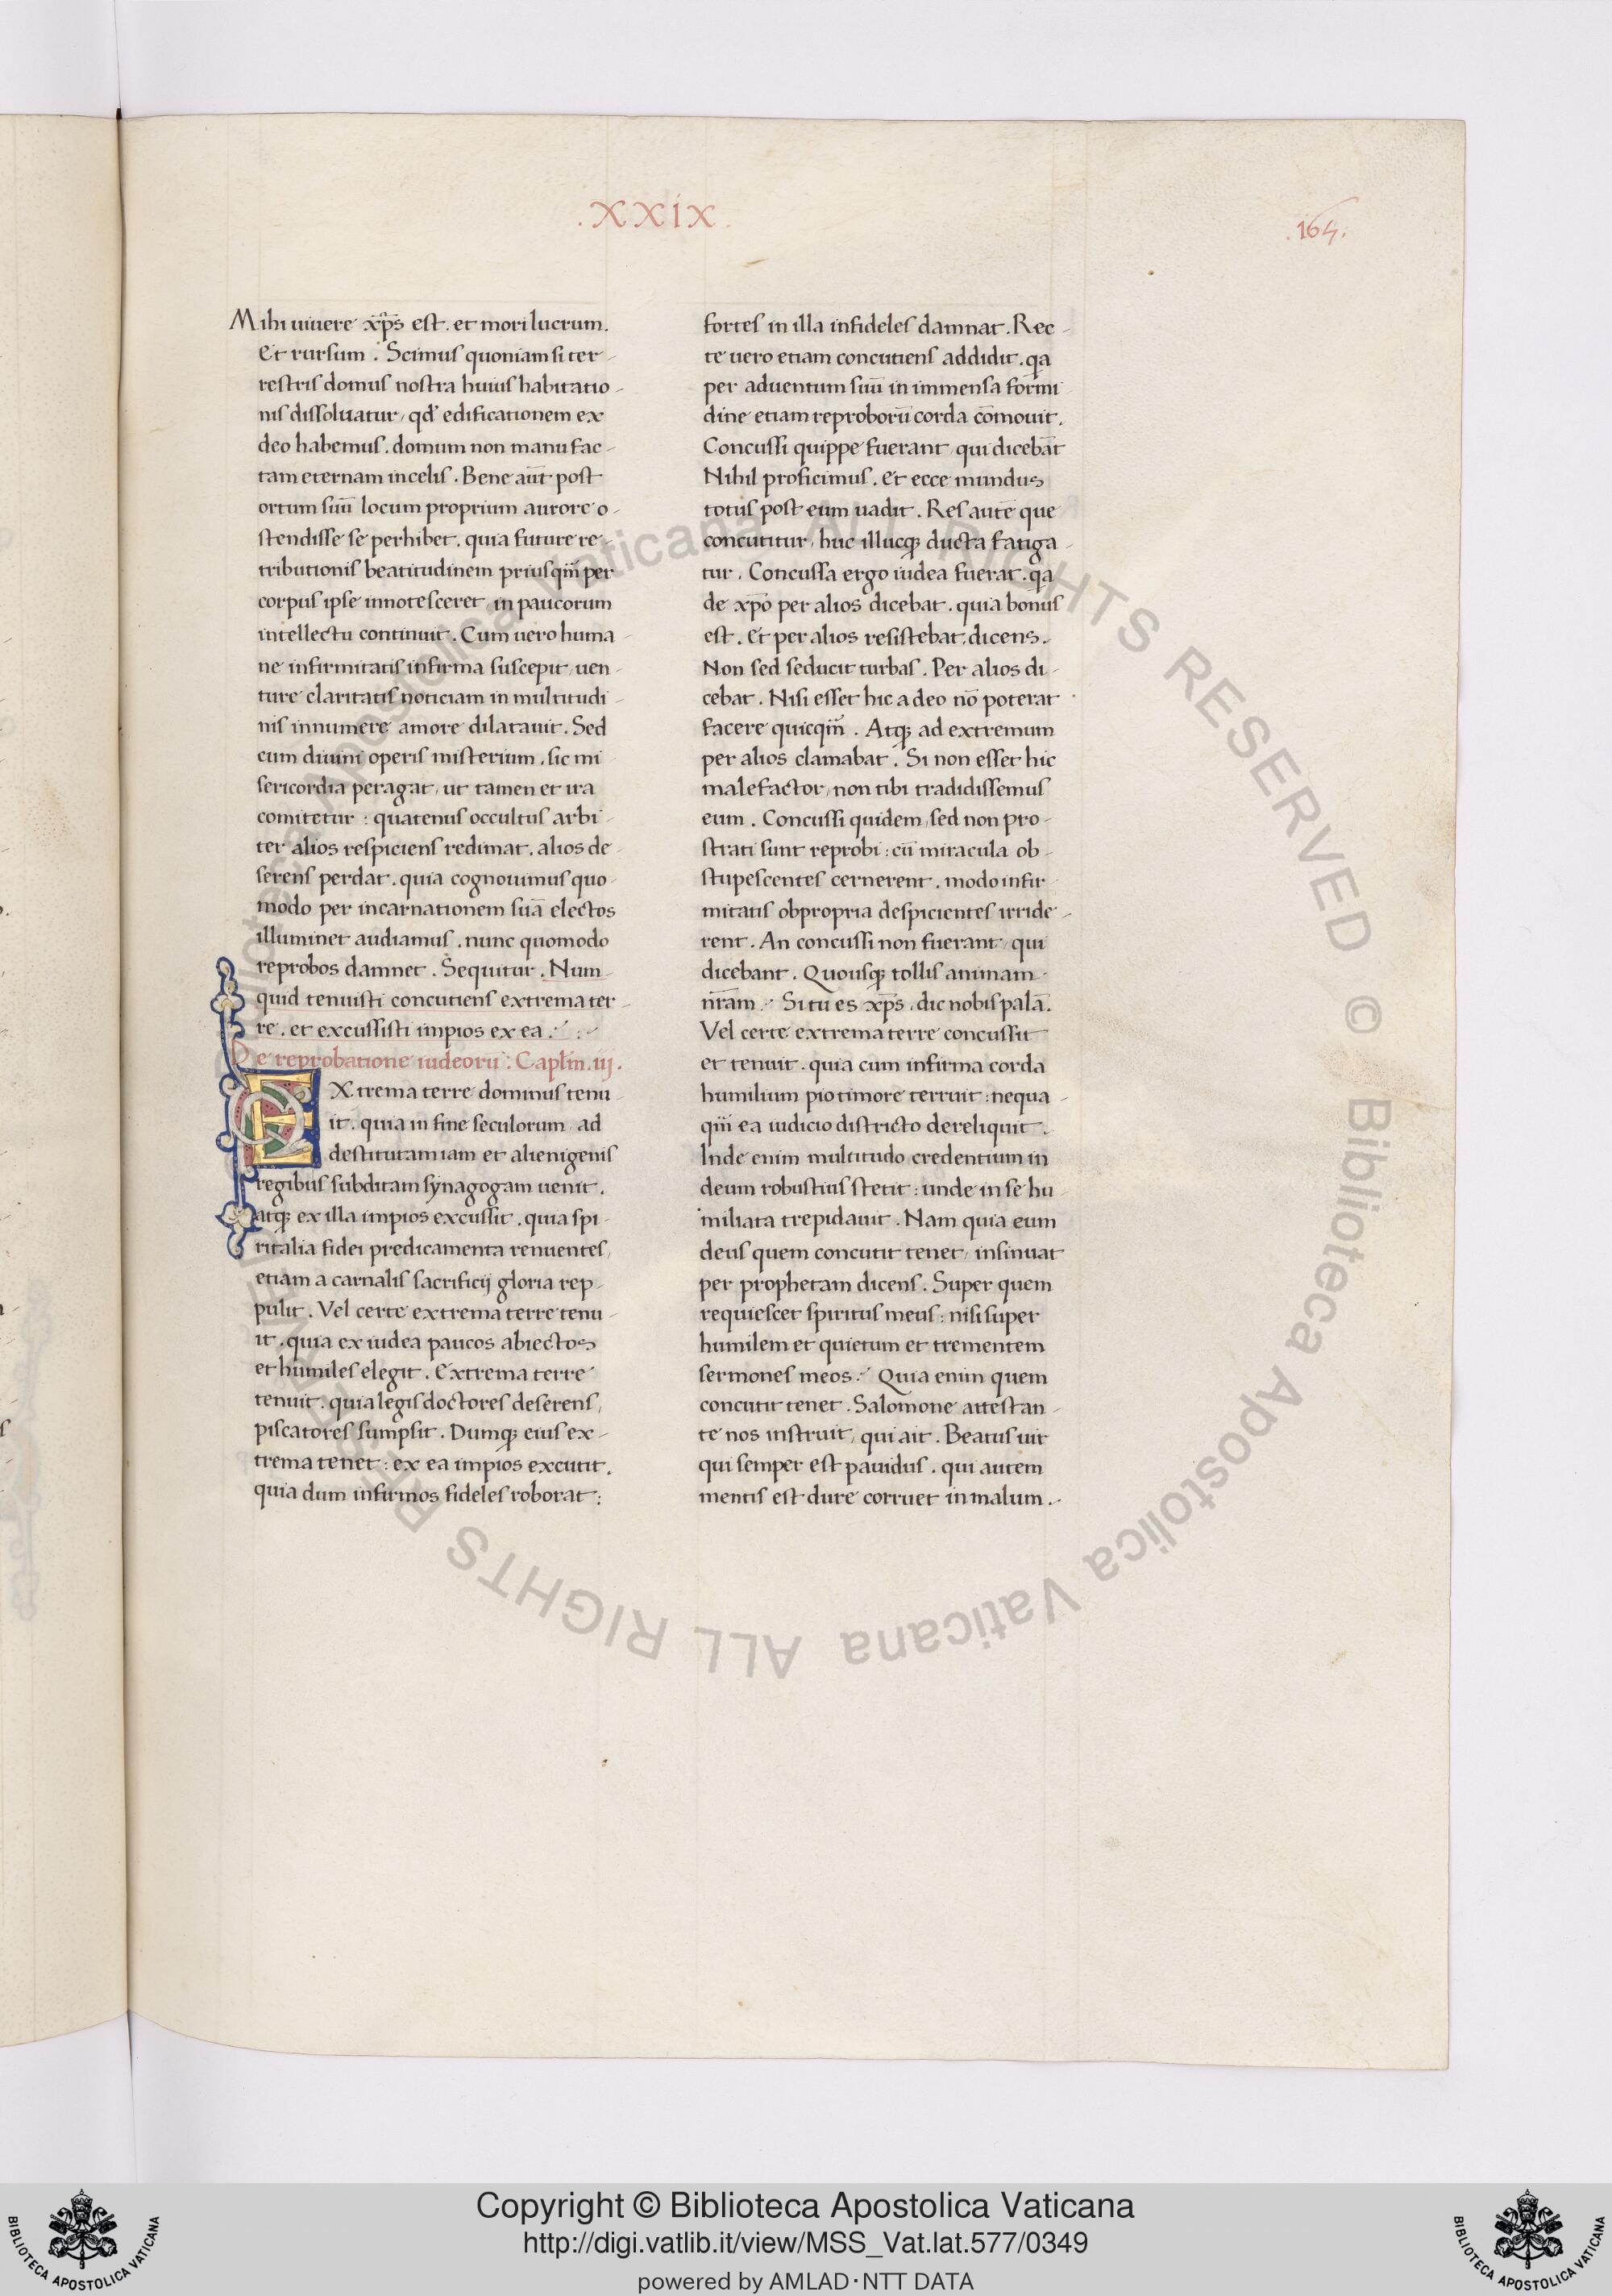 .XXIX.
.164.
Mihi uiuere xp̄s est. et mori lucrum.
Et rursum. Scimus quoniam si ter-
restris domus nostra huius habitatio-
nis dissoluatur, qđ edificationem ex
deo habemus. domum non manu fac-
tam eternam in celis. Bene aūt post
ortum suū locum proprium aurore o-
stendisse se perhibet. quia future re-
tributionis beatitudinem priusqm̄ per
corpus ipse innotesceret, in paucorum
intellectu continuit. Cum uero huma-
ne infirmitatis infirma suscepit, uen-
ture claritatis noticiam in multitudi-
nis innumere amore dilatauit. Sed
cum diuini operis misterium, sic mi
sericordia peragat, ut tamen et ira
comitetur : quatenus occultus arbi-
ter alios respiciens redimat. alios de-
serens perdat. quia cognouimus quo-
modo per incarnationem suā electos
illuminet audiamus. nunc quomodo
reprobos damnet. Sequitur. Num-
quid tenuisti concutiens extrema ter-
re. et excussisti impios ex ea.
De reprobatione iudeorū: Capłm. iij.
EXtrema terre dominus tenu
it. quia in fine seculorum, ad
destitutam iam et alienigenis
regibus subditam synagogam uenit.
atq; ex illa impios excussit. quia spi-
ritalia fidei predicamenta renuentes,
etiam a carnalis sacrificij gloria rep-
pulit. Vel certe extrema terre tenu-
it. quia ex iudea paucos abiectos
et humiles elegit. Extrema terre
tenuit. quia legis doctores deserens,
piscatores sumpsit. Dumq; eius ex-
trema tenet : ex ea impios excutit.
quia dum infirmos fideles roborat :
fortes in illa infideles damnat. Rec-
te uero etiam concutiens addidit. qa
per aduentum suū in immensa formi
dine etiam reproborū corda cōmouit.
Concussi quippe fuerant, qui dicebāt
Nihil proficimus. Et ecce mundus
totus post eum uadit. Res autē que
concutitur, huc illucq; ducta fatiga-
tur. Concussa ergo iudea fuerat. qa
de xp̄o per alios dicebat. quia bonus
est. Et per alios resistebat, dicens.
Non sed seducit turbas. Per alios di-
cebat. Nisi esset hic a deo nō poterat
facere quicqm̄. Atq; ad extremum
per alios clamabat. Si non esset hic
malefactor, non tibi tradidissemus
eum. Concussi quidem, sed non pro-
strati sunt reprobi : cū miracula ob-
stupescentes cernerent. modo infir-
mitatis obpropria despicientes irride-
rent. An concussi non fuerant, qui
dicebant. Quousq; tollis animam
nr̄am. Si tu es xp̄s, dic nobis palā.
Vel certe extrema terre concussit
et tenuit. quia cum infirma corda
humilium pio timore terruit : nequa-
qm̄ ea iudicio districto dereliquit.
Inde enim multitudo credentium in
deum robustius stetit : unde in se hu-
miliata trepidauit. Nam quia eum
deus quem concutit tenet, insinuat
per prophetam dicens. Super quem
requiescet spiritus meus : nisi super
humilem et quietum et trementem
sermones meos. Quia enim quem
concutit tenet. Salomone attestan-
te nos instruit, qui ait. Beatus uir
qui semper est pauidus. qui autem
mentis est dure corruet in malum.
Biblioteca Apostolica Vaticana ALL RIGHTS RESERVED © Biblioteca Apostolica Vaticana ALL RIGHTS RESERVED ©
Copyright © Biblioteca Apostolica Vaticana
http://digi.vatlib.it/view/MSS_Vat.lat.577/0349
powered by AMLAD・NTT DATA
BIBLIOTECA APOSTOLICA VATICANA
BIBLIOTECA APOSTOLICA VATICANA